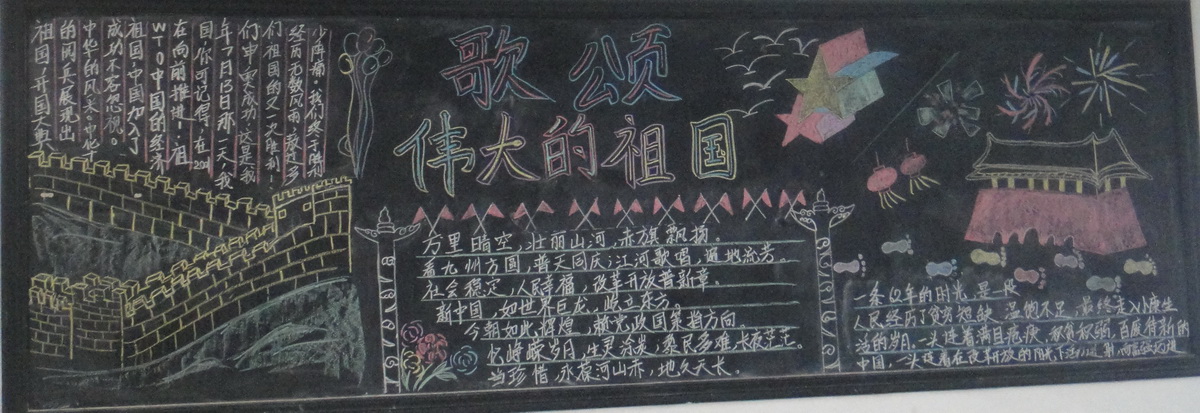 歌颂
伟大的祖国
们祖国的又一次胜利！
们申奥成功，这是我
年7月13日那一天，我
国，你可记得，在2001
在向前推进！祖
WTO中国的经济
祖国，中国加入了
成功不容忽视。
中华的风采。中华
的闭具展现出
祖国，开国大典
万里晴空，壮丽山河，赤旗飘扬。
看九州方圆，普天同庆；江河歌唱，遍地流芳。
社会稳定，人民幸福，改革开放普新章。
新中国，如世界巨龙，屹立东方。
今朝如此辉煌，赖党政国策指方向。
忆峥嵘岁月，生灵涂炭，桑民多难，长夜茫茫。
当珍惜，永葆河山赤，地久天长。
一条60年的时光，是一段
人民经历了贫穷短缺，温饱不足，最终走入小康生
活的岁月，一头连着满目疮痍，积贫积弱，百废待新的
中国，一头连着在改革开放的